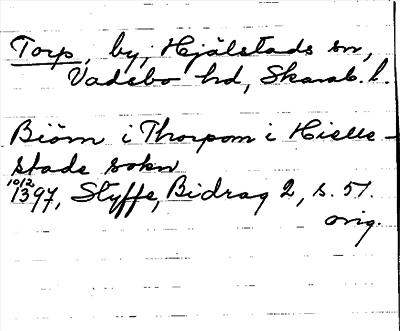 Torp, by, Hjälstads sn,
Vadsbo hd, Skarab. l.
Biörn i Thorpom i Hielle-
stade sokn
10/2 1397, Styffe, Bidrag 2, s. 51.
orig.